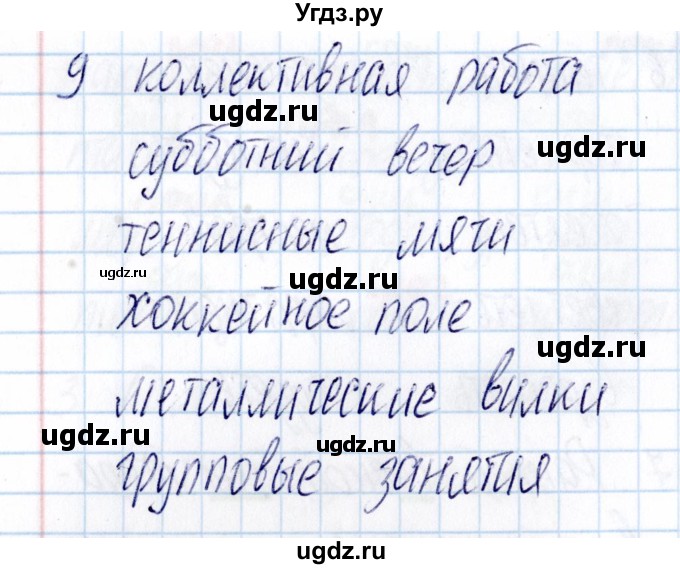 Угдз.ру
9 коллективная работа
ugdz.ru
субботний вечер
ugdz.ru
теннисные мячи
ugdz.ru
ugdz.ru
хоккейное поле
ugdz.ru
металлические вилки
ugdz.ru
ugdz.ru
групповые занятия
ugdz.ru